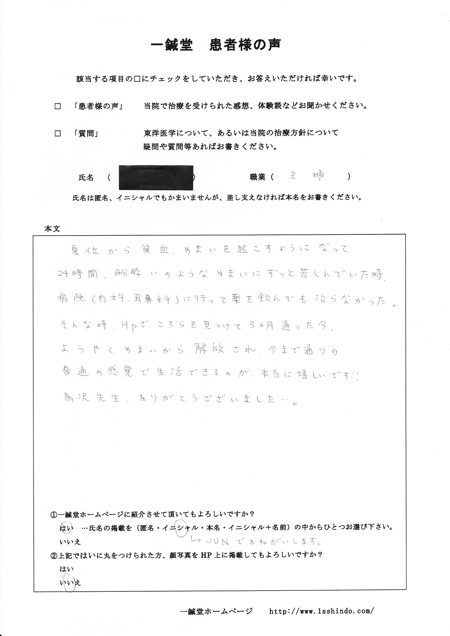 一鍼堂 患者様の声
該当する項目の□にチェックをしていただき、お答えいただければ幸いです。
□ 「患者様の声」 当院で治療を受けられた感想、体験談などお聞かせください。
□ 「質問」 東洋医学について、あるいは当院の治療方針について
疑問や質問等あればお書きください。
氏名 ( ) 職業 ( 主婦 )
氏名は匿名、イニシャルでもかまいませんが、差し支えなければ本名をお書きください。
本文
夏位から貧血、めまいを起こすようになって
24時間、船酔いのようなめまいにずっと苦しんでいた時、
病院(内科、耳鼻科)に行って薬を飲んでも治らなかった。
そんな時、Hpでこちらを見つけて3ヵ月通った今、
ようやくめまいから解放され、今まで通りの
普通の感覚で生活できるのが、本当に嬉しいです。
先生、ありがとうございました…。
①一鍼堂ホームページに紹介させて頂いてもよろしいですか?
はい …氏名の掲載を(匿名・イニシャル・本名・イニシャル+名前)の中からひとつお選び下さい。
いいえ ↳ JUNでおねがいします。
②上記ではいに丸をつけられた方、顔写真をHP上に掲載してもよろしいですか?
はい
いいえ
一鍼堂ホームページ http://www.1sshindo.com/